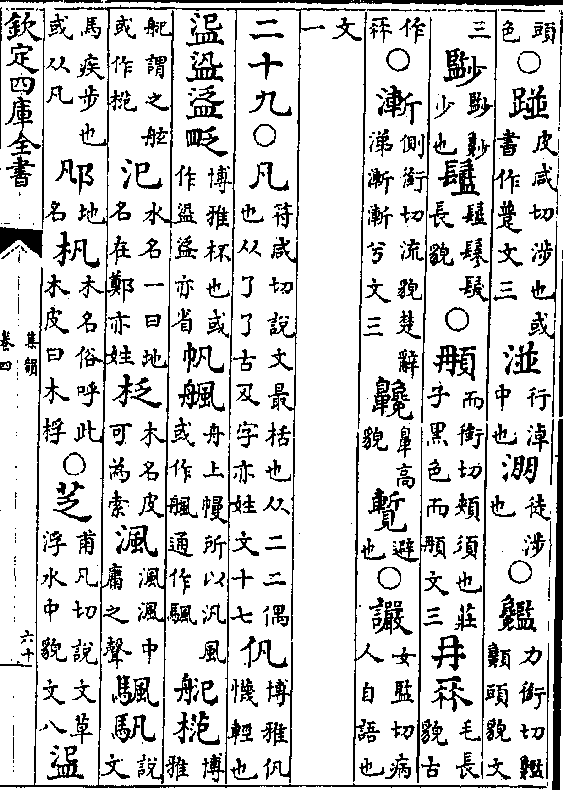 頭色○踫皮咸切涉也或書作文三湴行淖中也淜徒涉也○力銜切頭貌文
三尠少也長貌○而銜切頰須也莊子黑色而文三冄毛長貌古
作○漸側銜切流貌楚辭涕漸漸兮文三鼻高貌覱避也○女監切病人自語也
文一
二十九○凡符咸切說文最括也从二二偶也从了了古及字亦姓文十七仉博雅仉輕也
博雅杯也或作亦省帆颿舟上幔所以汎風或作颿通作博雅
舤謂之舷或作氾水名一曰地名在鄭亦姓柉木名皮可為索渢渢渢中庸之聲颿說文
馬疾步也或从凡地名杋木名俗呼此木皮曰木桴○芝甫凡切說文草浮水中貌文八
欽定四庫全書
集韻
卷四
六十